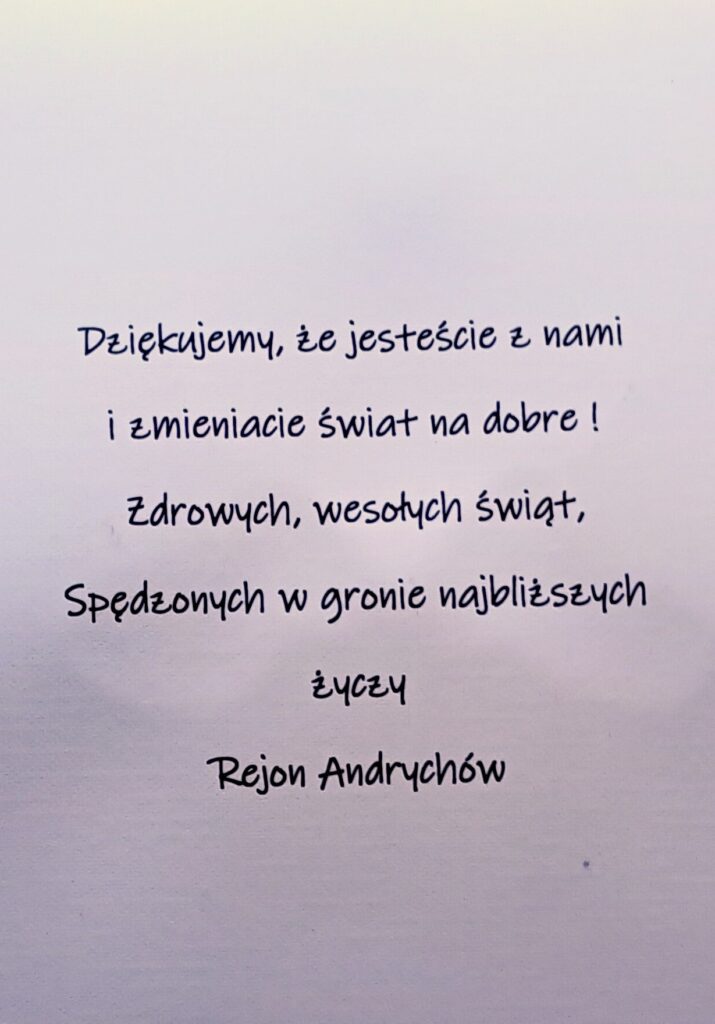 Dziękujemy, że jesteście z nami
i zmieniacie świat na dobre !
Zdrowych, wesołych świąt,
Spędzonych w gronie najbliższych
życzy
Rejon Andrychów